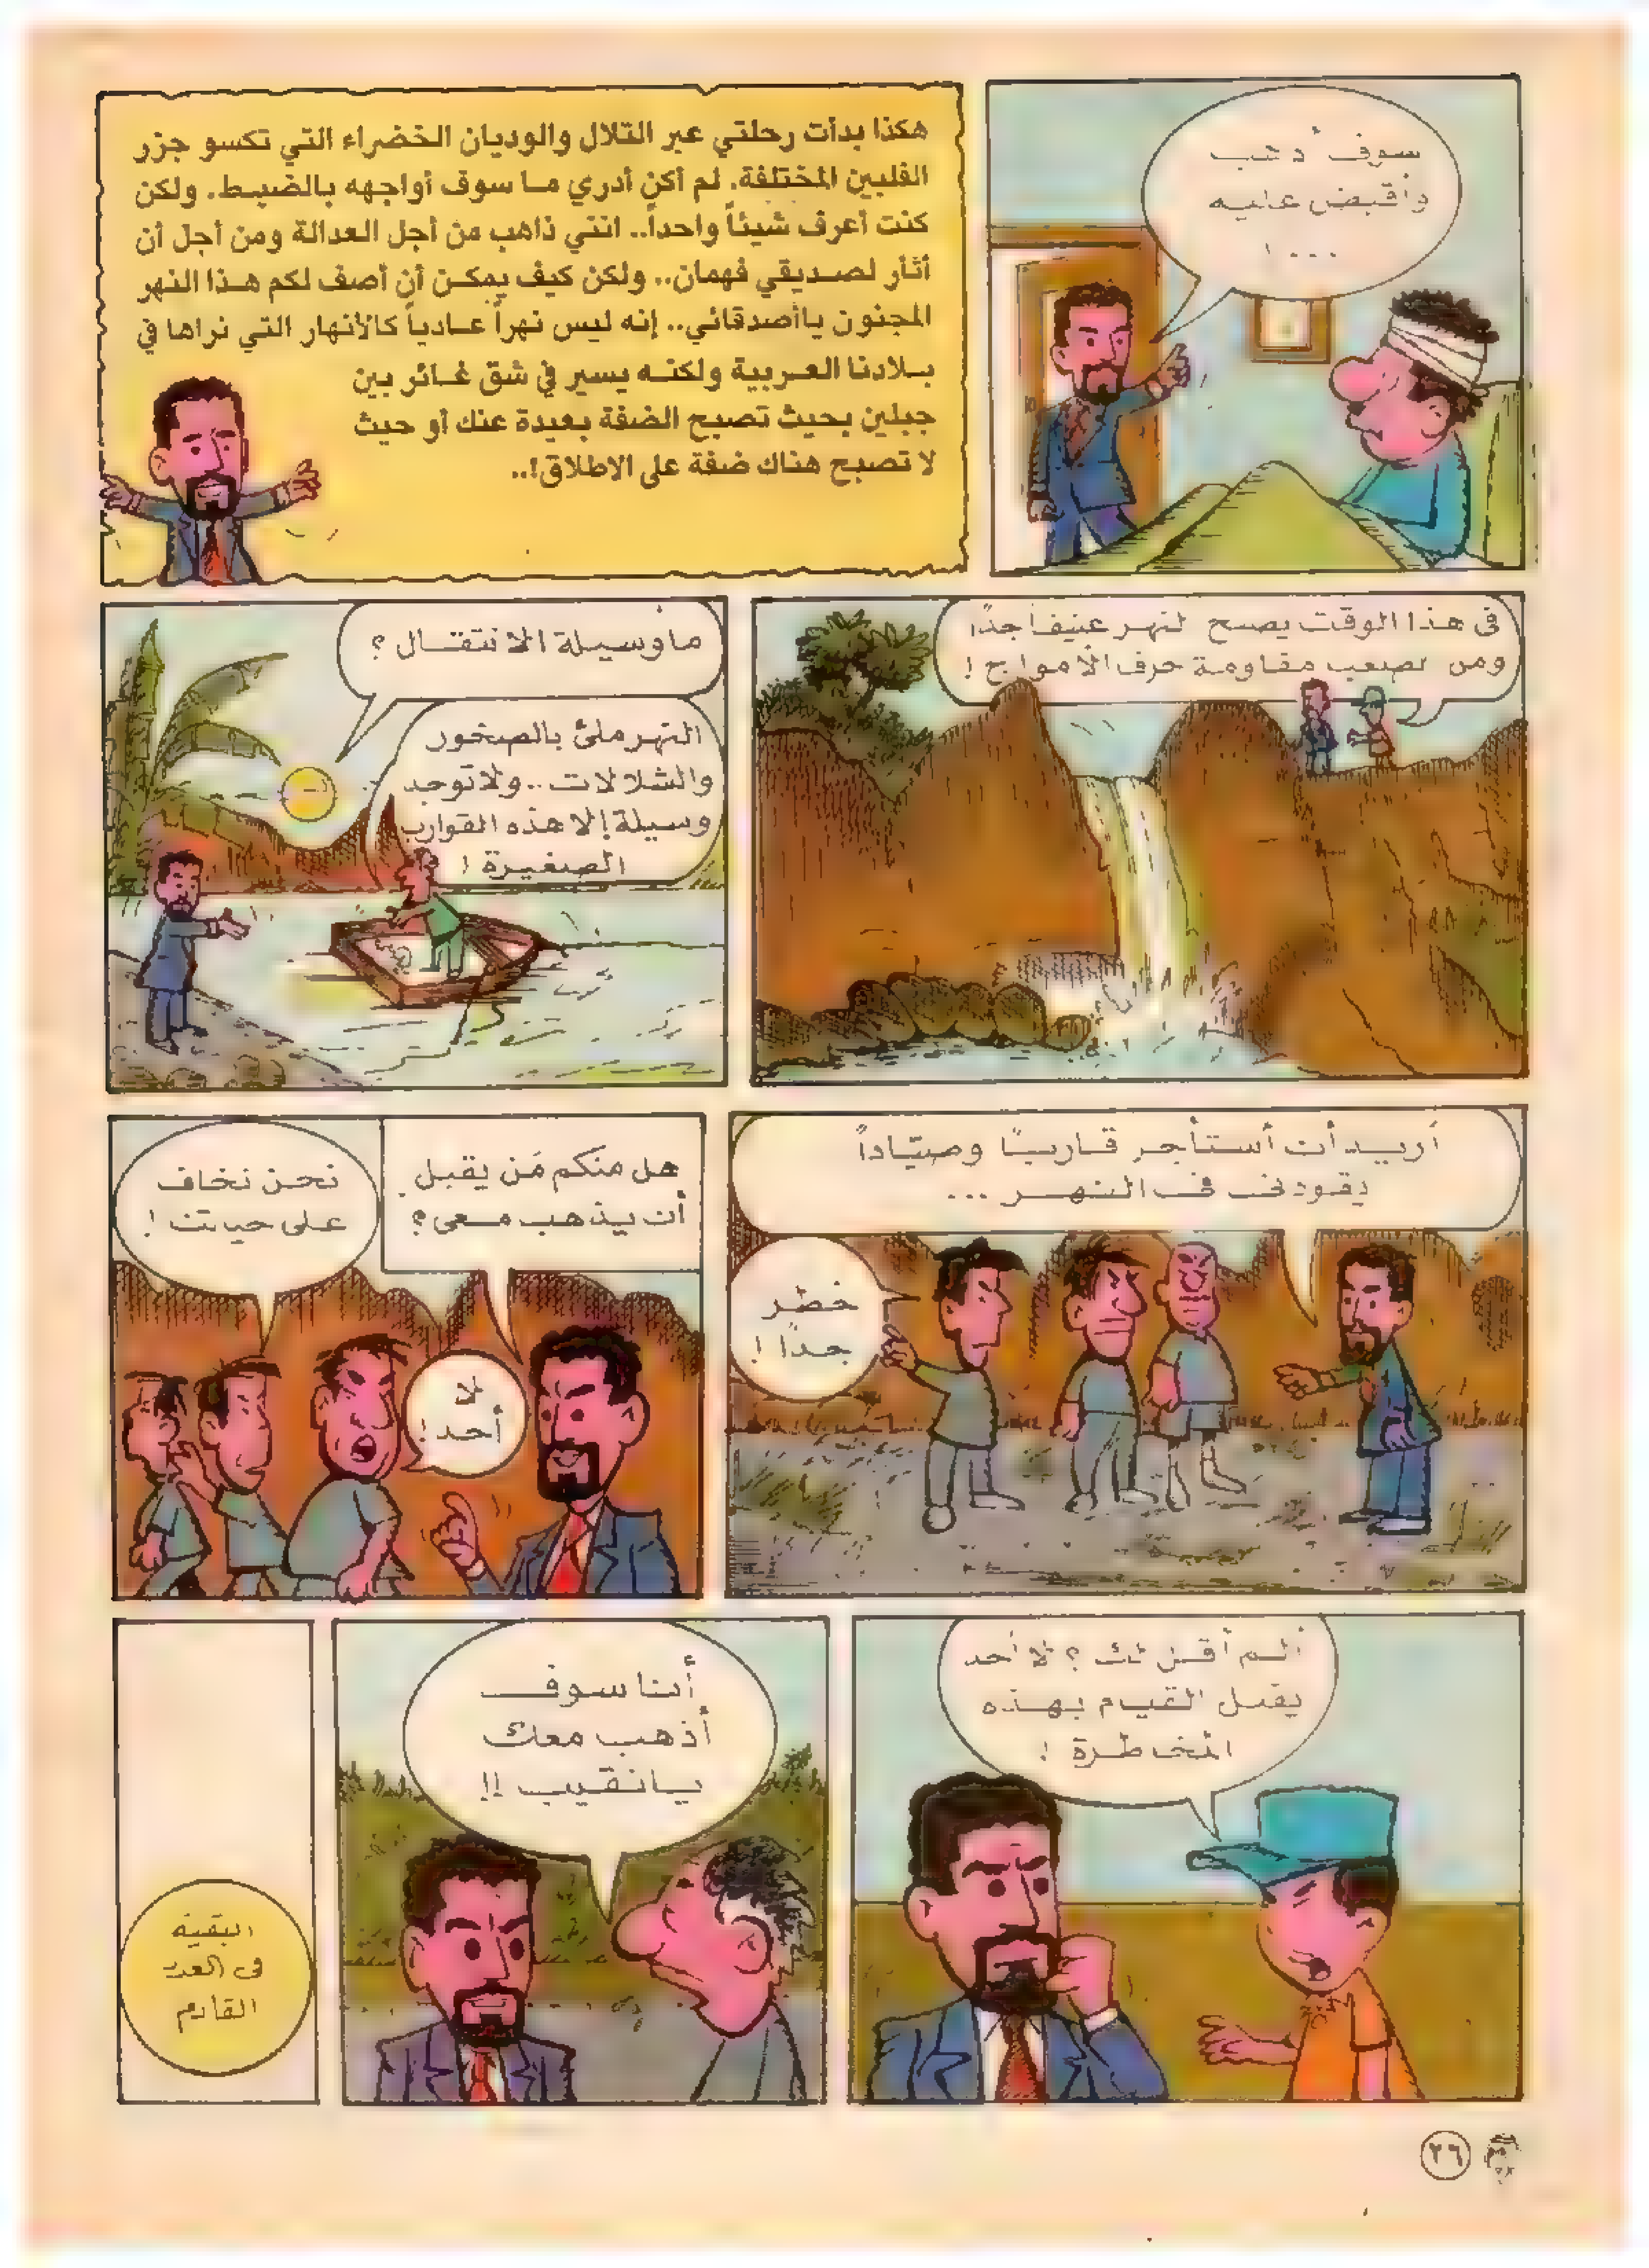 سوف أذهب
وأقبض عليه
...!
هكذا بدأت رحلتي عبر التلال والوديان الخضراء التي تكسو جزر
الفلبين المختلفة. لم أكن أدري ما سوف أواجهه بالضبط. ولكن
كنت أعرف شيئاً واحداً.. انني ذاهب من أجل العدالة ومن أجل أن
أثأر لصديقي فهمان.. ولكن كيف يمكن أن أصف لكم هذا النهر
المجنون ياأصدقائي.. إنه ليس نهراً عادياً كالأنهار التي نراها في
بلادنا العربية ولكنه يسير في شق غائر بين
جبلين بحيث تصبح الضفة بعيدة عنك أو حيث
لا تصبح هناك ضفة على الاطلاق!..
فى هذا الوقت يصبح النهر عنيفا جدًا
ومن الصعب مقاومة جرف الأمواج !
ما وسيلة الانتقال ؟
النهر ملئ بالصخور
والشلالات .. ولا توجد
وسيلة إلا هذه القوارب
الصغيرة !
أريد أن أستأجر قاربًا وصيّاداً
يقودنى فى النهر ...
خطر
جدًا !
هل منكم مَن يقبل
أن يذهب معى ؟
لا
أحد !
نحن نخاف
على حياتنا !
ألم أقل لك ؟ لا أحد
يقبل القيام بهذه
المخاطرة !
أنا سوف
أذهب معك
يا نقيب !!
البقية
فى العدد
القادم
٢٦